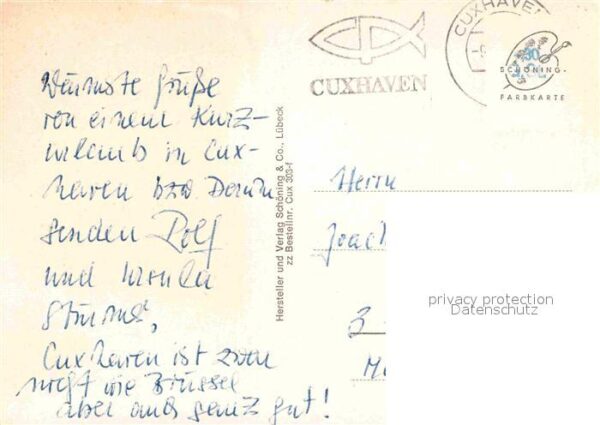 Wärmste Grüße
von einem Kurz-
urlaub in Cux-
haven bzw
senden Rolf
und Ursula
Cuxhaven ist zwar
nicht wie Brüssel
aber auch ganz gut!
Hersteller und Verlag Schöning & Co., Lübeck
zz Bestellnr. Cux 303-f
CUXHAVEN
CUXHAVEN
30
SCHÖNING-
FARBKARTE
Herrn
Joach
3
privacy protection
Datenschutz